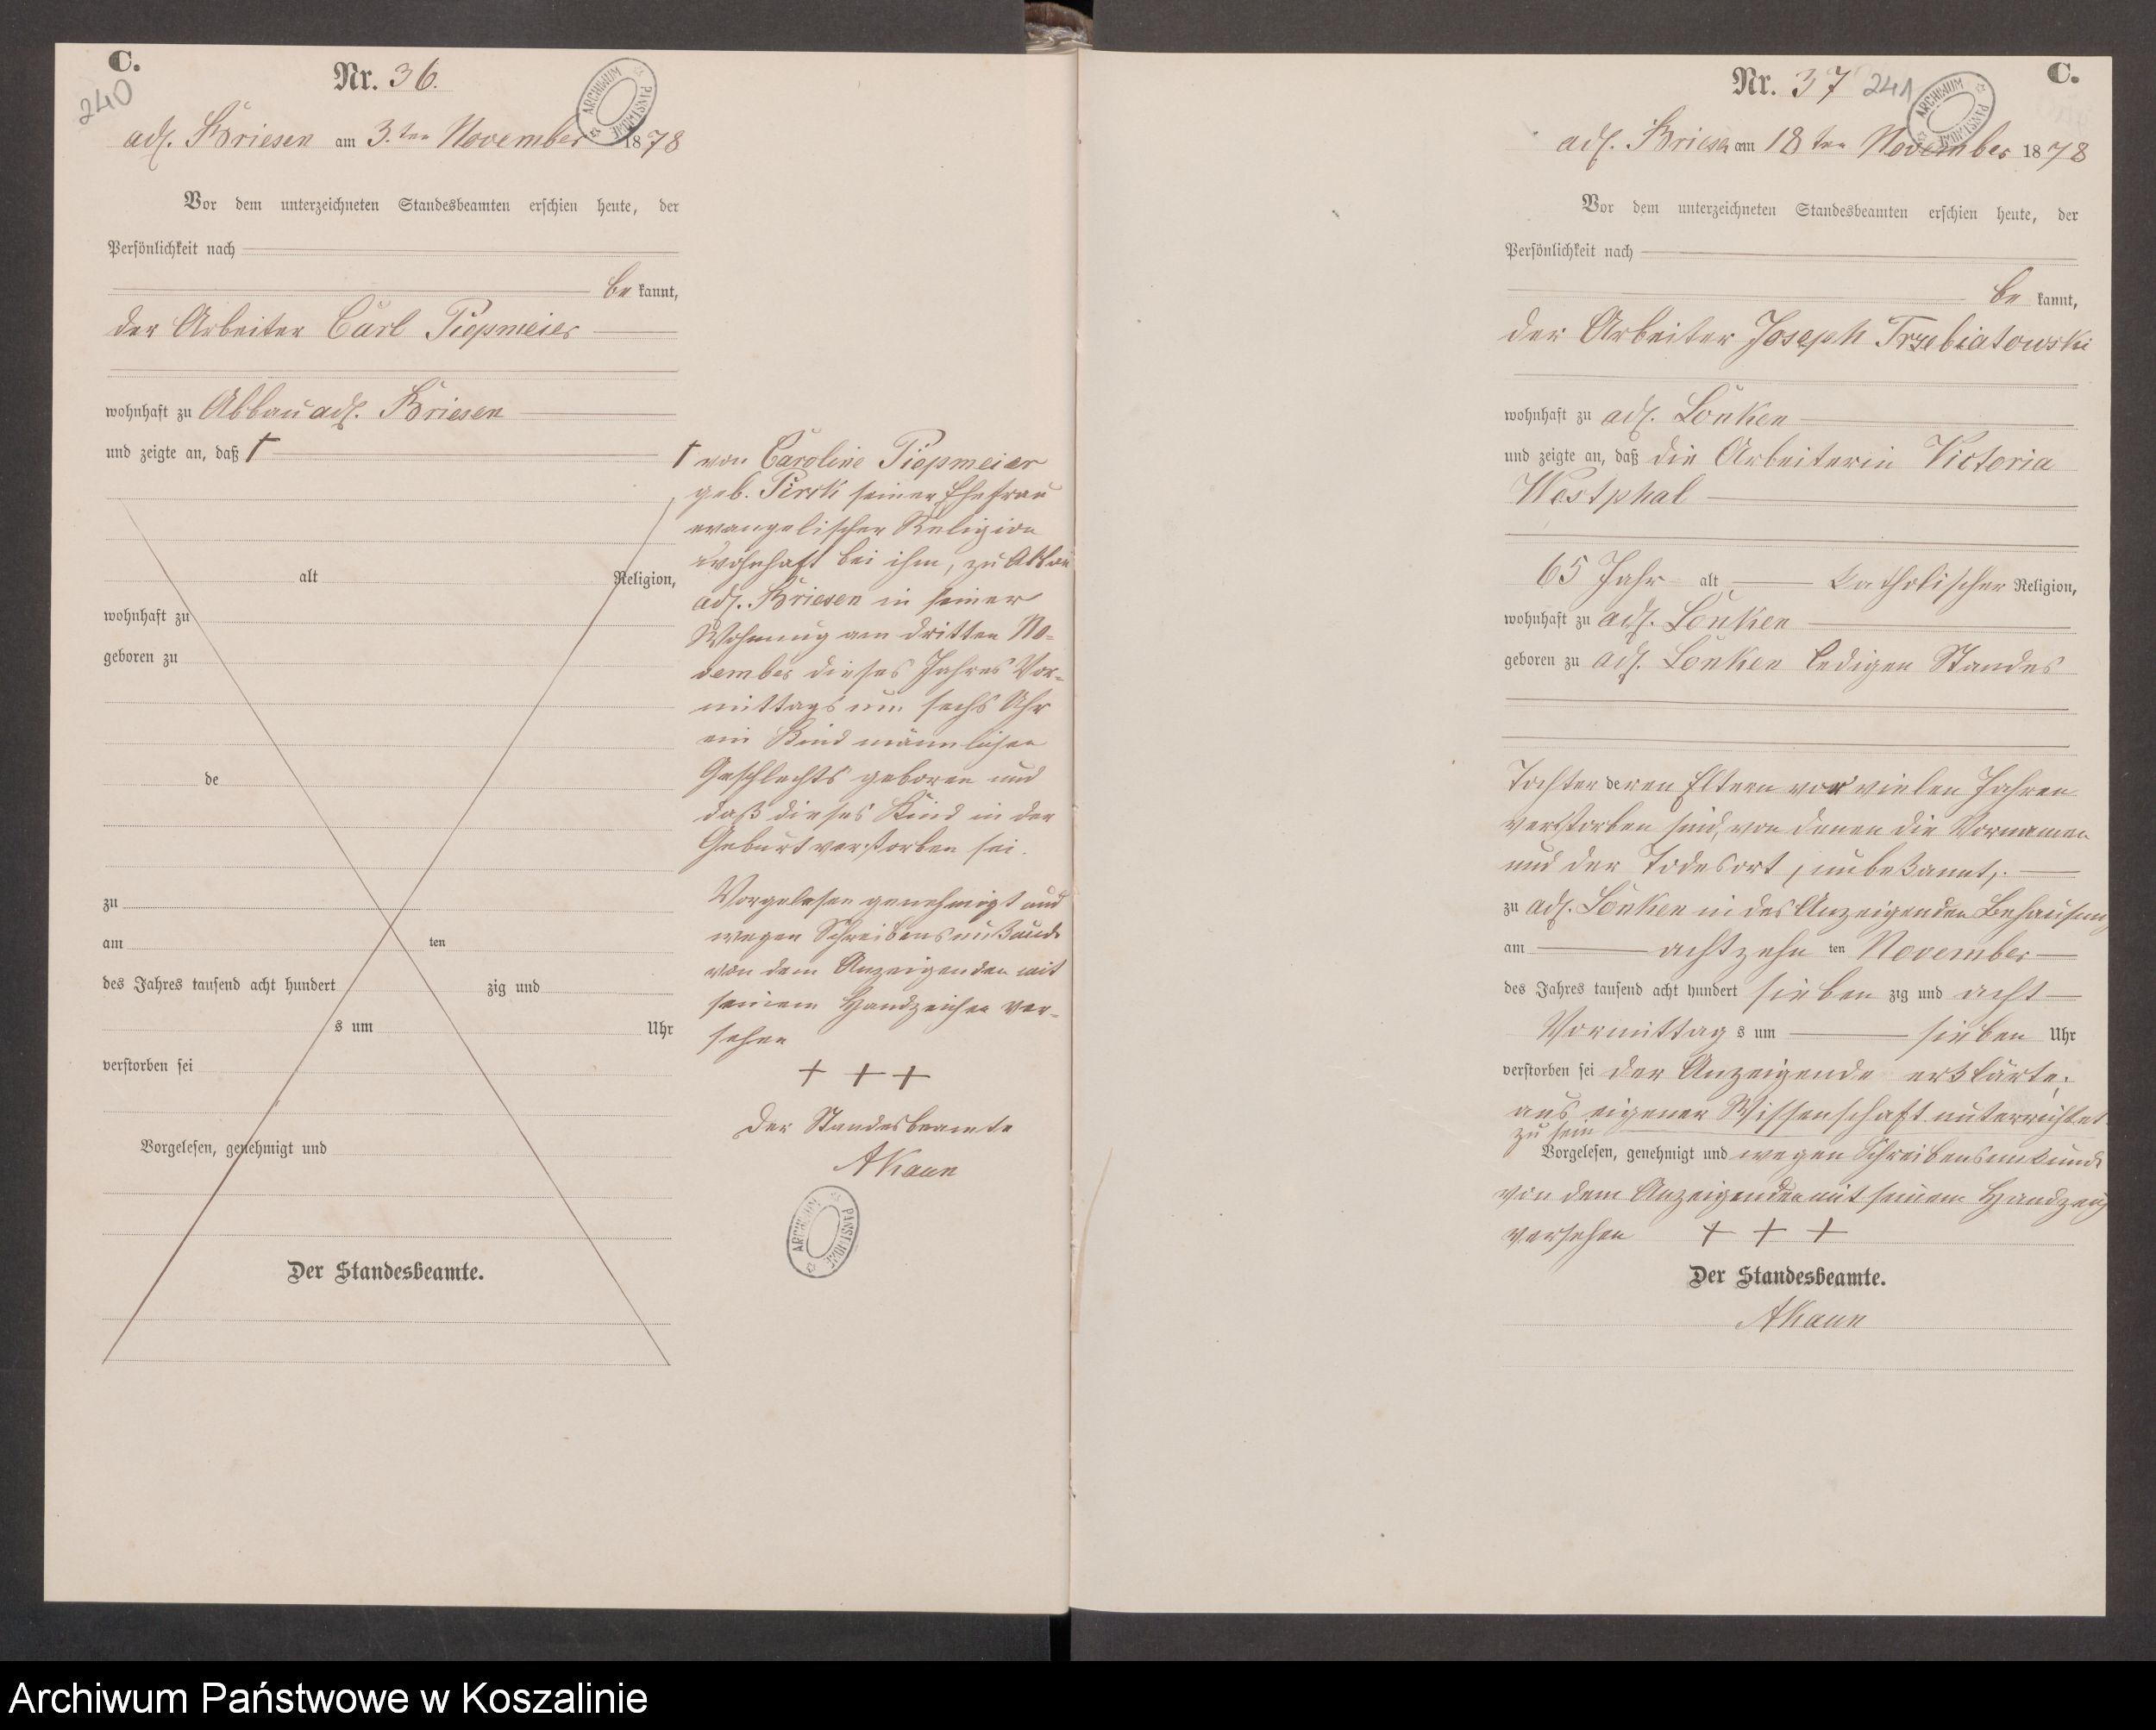 C.
240
Nr. 36.
ARCHIWUM PAŃSTWOWE
adl. Briesen am 3.ten November 1878
Vor dem unterzeichneten Standesbeamten erschien heute, der
Persönlichkeit nach
be kannt,
der Arbeiter Carl Piepmeier
wohnhaft zu Abbau adl. Briesen
und zeigte an, daß †
alt Religion,
wohnhaft zu
geboren zu
de
zu
am ten
des Jahres tausend acht hundert zig und
s um Uhr
verstorben sei
Vorgelesen, genehmigt und
Der Standesbeamte.
† von Caroline Piepmeier
geb. seiner Ehefrau
evangelischer Religion
wohnhaft bei ihm, zu Abbau
adl. Briesen in seiner
Wohnung am dritten No-
vember dieses Jahres Vor-
mittags um sechs Uhr
ein Kind männlichen
Geschlechts geboren und
daß dieses Kind in der
Geburt verstorben sei.
Vorgelesen genehmigt und
wegen Schreibensunkunde
von dem Anzeigenden mit
seinem Handzeichen ver-
sehen
+ + +
Der Standesbeamte
AKaun
ARCHIWUM PAŃSTWOWE
C.
Nr. 37
241
ARCHIWUM PAŃSTWOWE
adl. Briesen am 18ten November 1878
Vor dem unterzeichneten Standesbeamten erschien heute, der
Persönlichkeit nach
be kannt,
der Arbeiter Joseph Trzebiatowski
wohnhaft zu adl. Lonken
und zeigte an, daß die Arbeiterin Victoria
Westphal
65 Jahr alt katholischer Religion,
wohnhaft zu adl. Lonken
geboren zu adl. Lonken ledigen Standes
Tochter deren Eltern vor vielen Jahren
verstorben sind, von denen die Vornamen
und der Todesort, unbekannt,
zu adl. Lonken in des Anzeigenden Behausung
am achtzehn ten November
des Jahres tausend acht hundert sieben zig und acht
Vormittag s um sieben Uhr
verstorben sei der Anzeigende erklärte:
aus eigener Wissenschaft unterrichtet
zu sein
Vorgelesen, genehmigt und wegen Schreibensunkunde
von dem Anzeigenden mit seinem Handzeig
versehen + + +
Der Standesbeamte.
AKaun
Archiwum Państwowe w Koszalinie